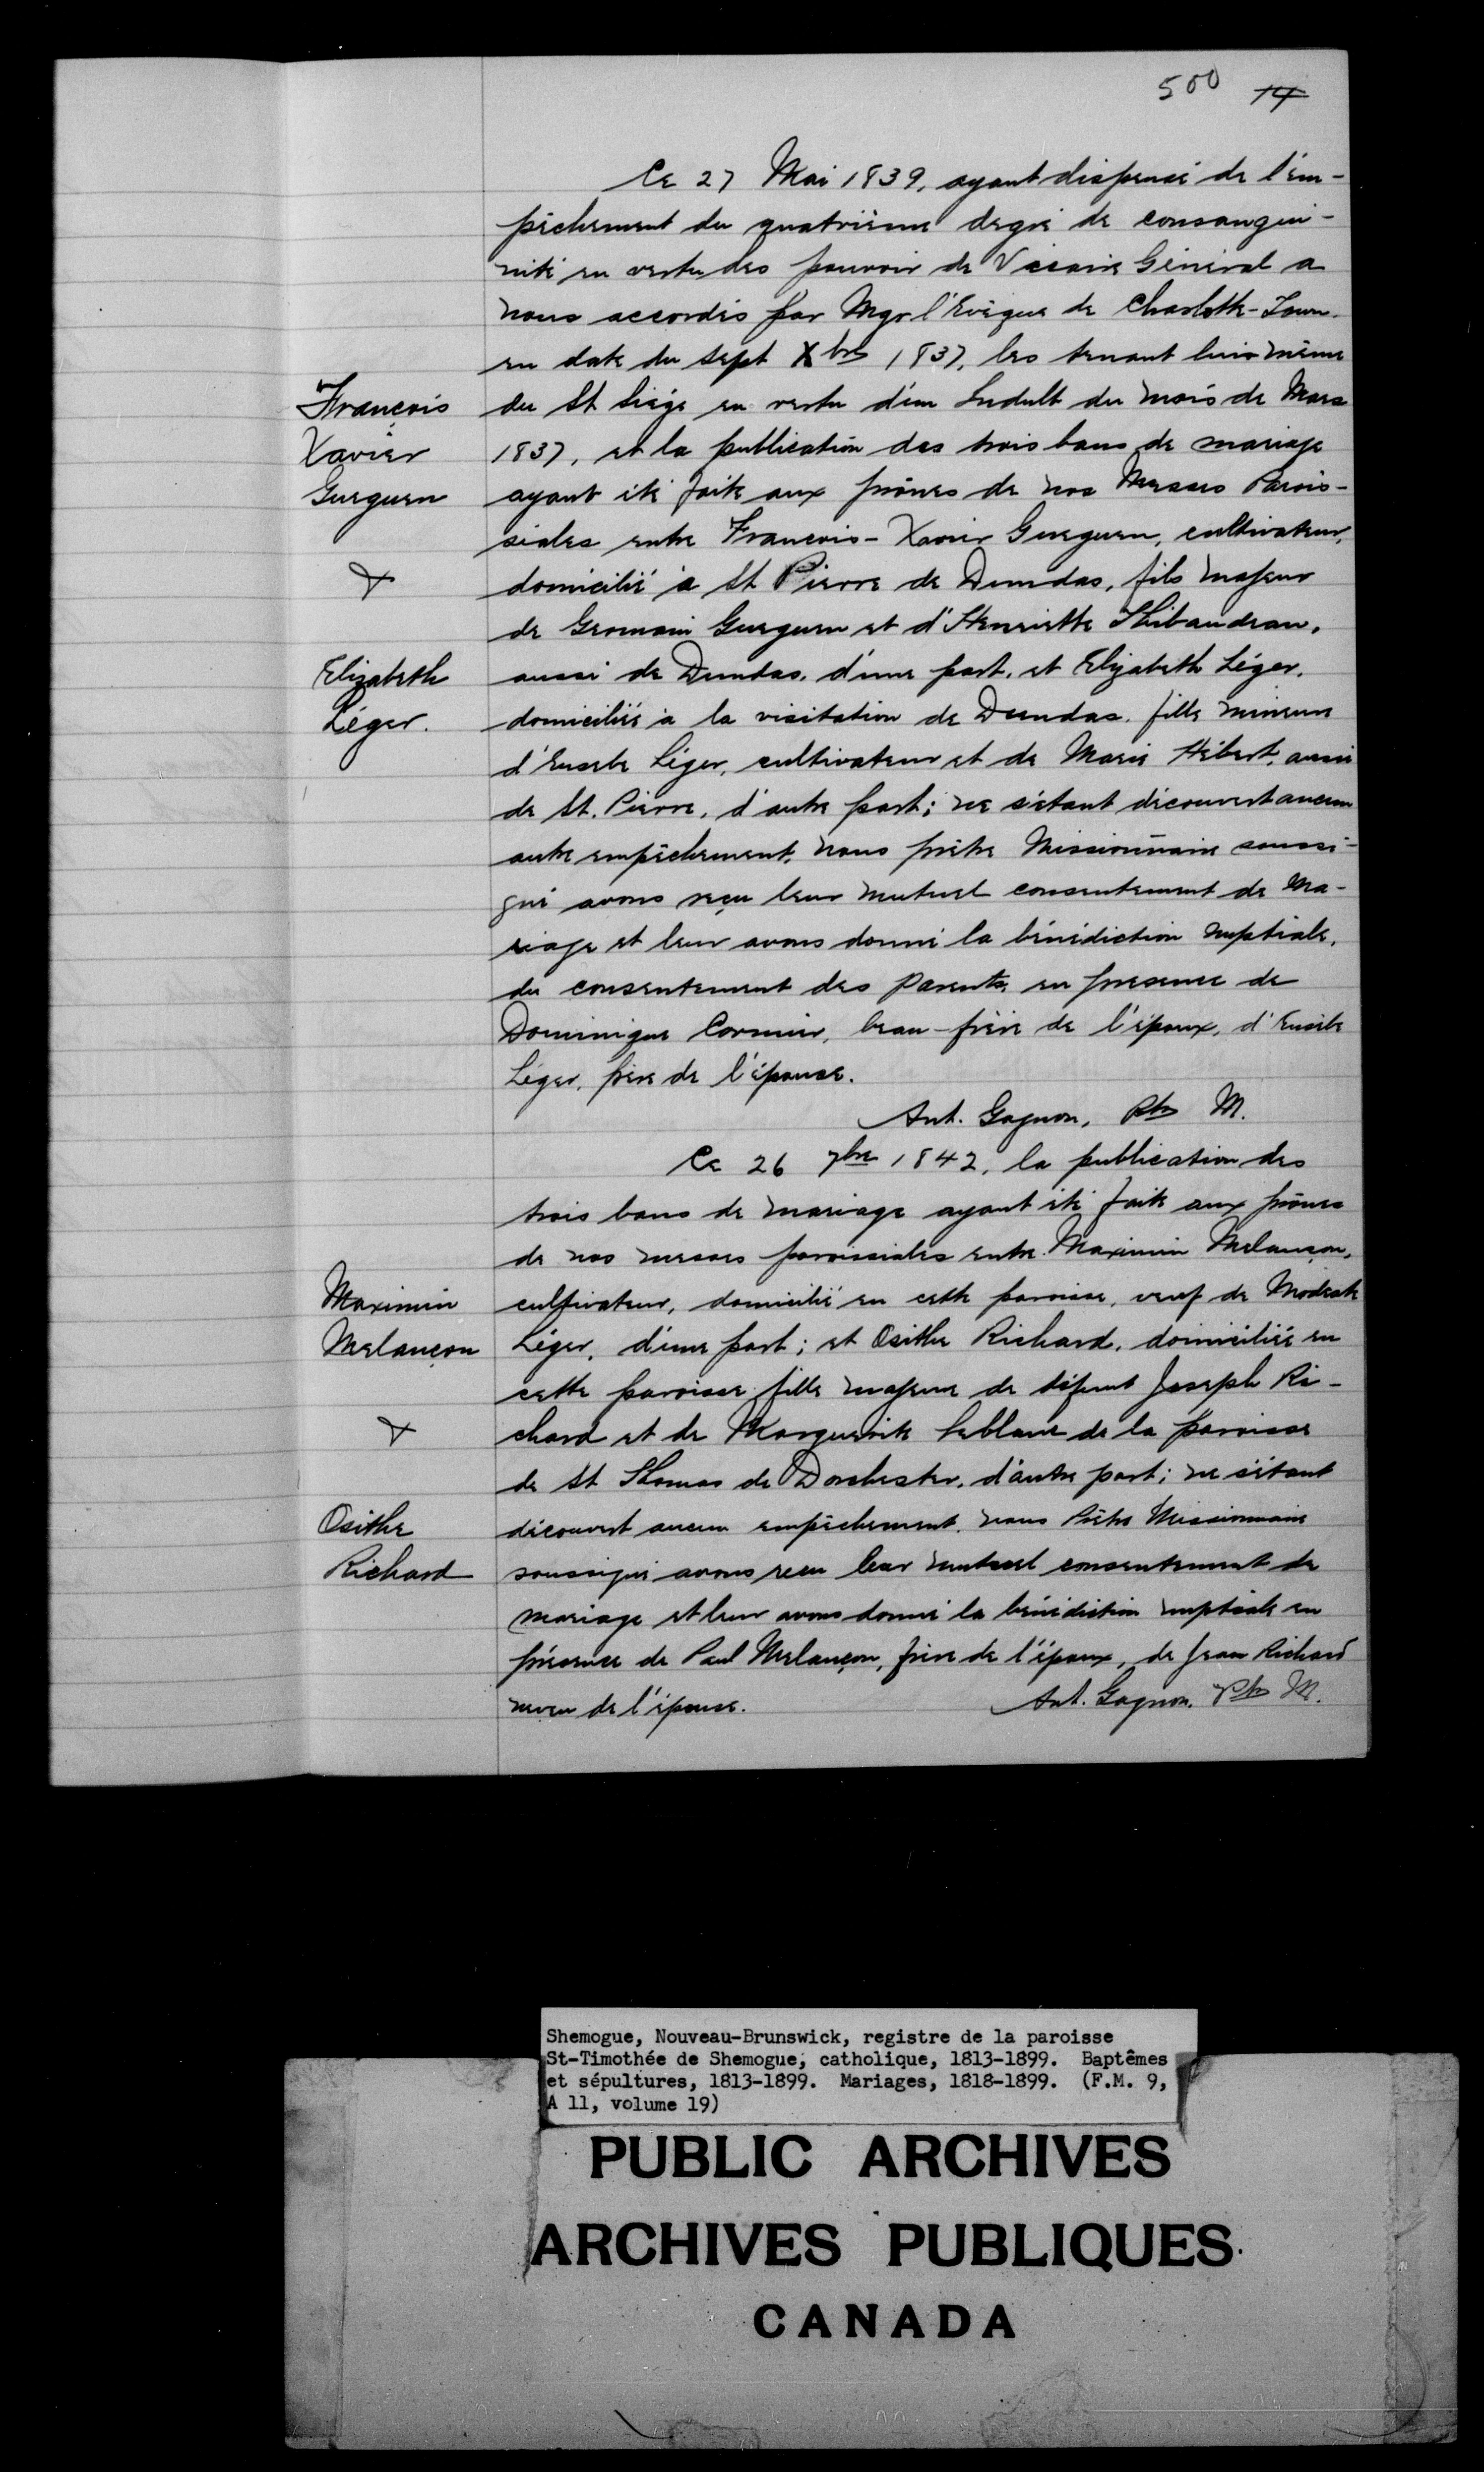 500 14
Ce 27 Mai 1839, ayant dispensé de l'em-
pêchement du quatrième degré de consangui-
nité en vertu des pouvoir de Vicaire Général a
nous accordés par Mgr l'Evêque de Charlotte-Town.
en date du sept Xbre 1837, les tenant lui même
du St Siége en vertu d'un Indult du mois de Mars
1837, et la publication des trois bans de mariage
ayant été faite aux prônes de nos Messes Parois-
siales entre François-Xavier Gueguen, cultivateur,
domicilié à St Pierre de Dundas, fils majeur
de Germain Gueguen et d'Henriette Thibaudeau,
aussi de Dundas, d'une part, et Elizabeth Léger,
domiciliée à la visitation de Dundas, fille mineure
d'Eusebe Léger, cultivateur et de Marie Hébert, aussi
de St. Pierre, d'autre part; ne s'étant découvert aucun
autre empêchement, nous prêtre Missionnaire soussi-
gné avons reçu leur mutuel consentement de Ma-
riage et leur avons donné la bénédiction nuptiale,
du consentement des Parents, en présence de
Dominique Cormier, beau-frère de l'époux, d'Eusèbe
Léger, père de l'épouse.
Ant. Gagnon, Ptre M.
François
Xavier
Gueguen
&
Elizabeth
Léger.
Ce 26 7bre 1842, la publication des
trois bans de mariage ayant été faite aux prônes
de nos messes paroissiales entre Maximin Melançon,
cultivateur, domicilié en cette paroisse, veuf de Modeste
Léger, d'une part; et Osithe Richard, domiciliée en
cette paroisse fille majeure de défunt Joseph Ri-
chard et de Marguerite Leblanc de la paroisse
de St Thomas de Dorchester, d'autre part; ne s'étant
découvert aucun empêchement, nous Prêtre Missionnaire
soussigné avons recu leur mutuel consentement de
mariage et leur avons donné la bénédiction nuptiale en
présence de Paul Melançon, frère de l'époux, de Jean Richard
neveu de l'épouse. Ant. Gagnon, Ptre M.
Maximin
Melançon
&
Osithe
Richard
Shemogue, Nouveau-Brunswick, registre de la paroisse
St-Timothée de Shemogue, catholique, 1813-1899. Baptêmes
et sépultures, 1813-1899. Mariages, 1818-1899. (F.M. 9,
A 11, volume 19)
PUBLIC ARCHIVES
ARCHIVES PUBLIQUES
CANADA